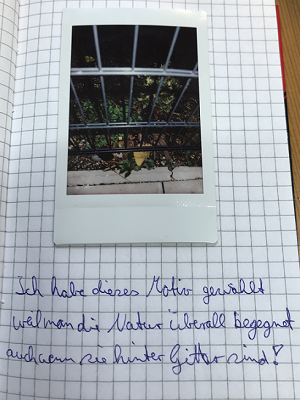 Ich habe dieses Motiv gewählt
weil man die Natur überall begegnet
auch wenn sie hinter Gitter sind!